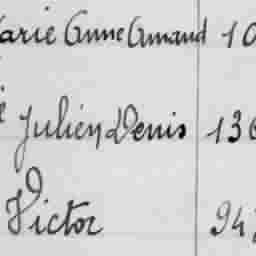 arie Anne Amand 10
Julien Denis 136
Victor 94